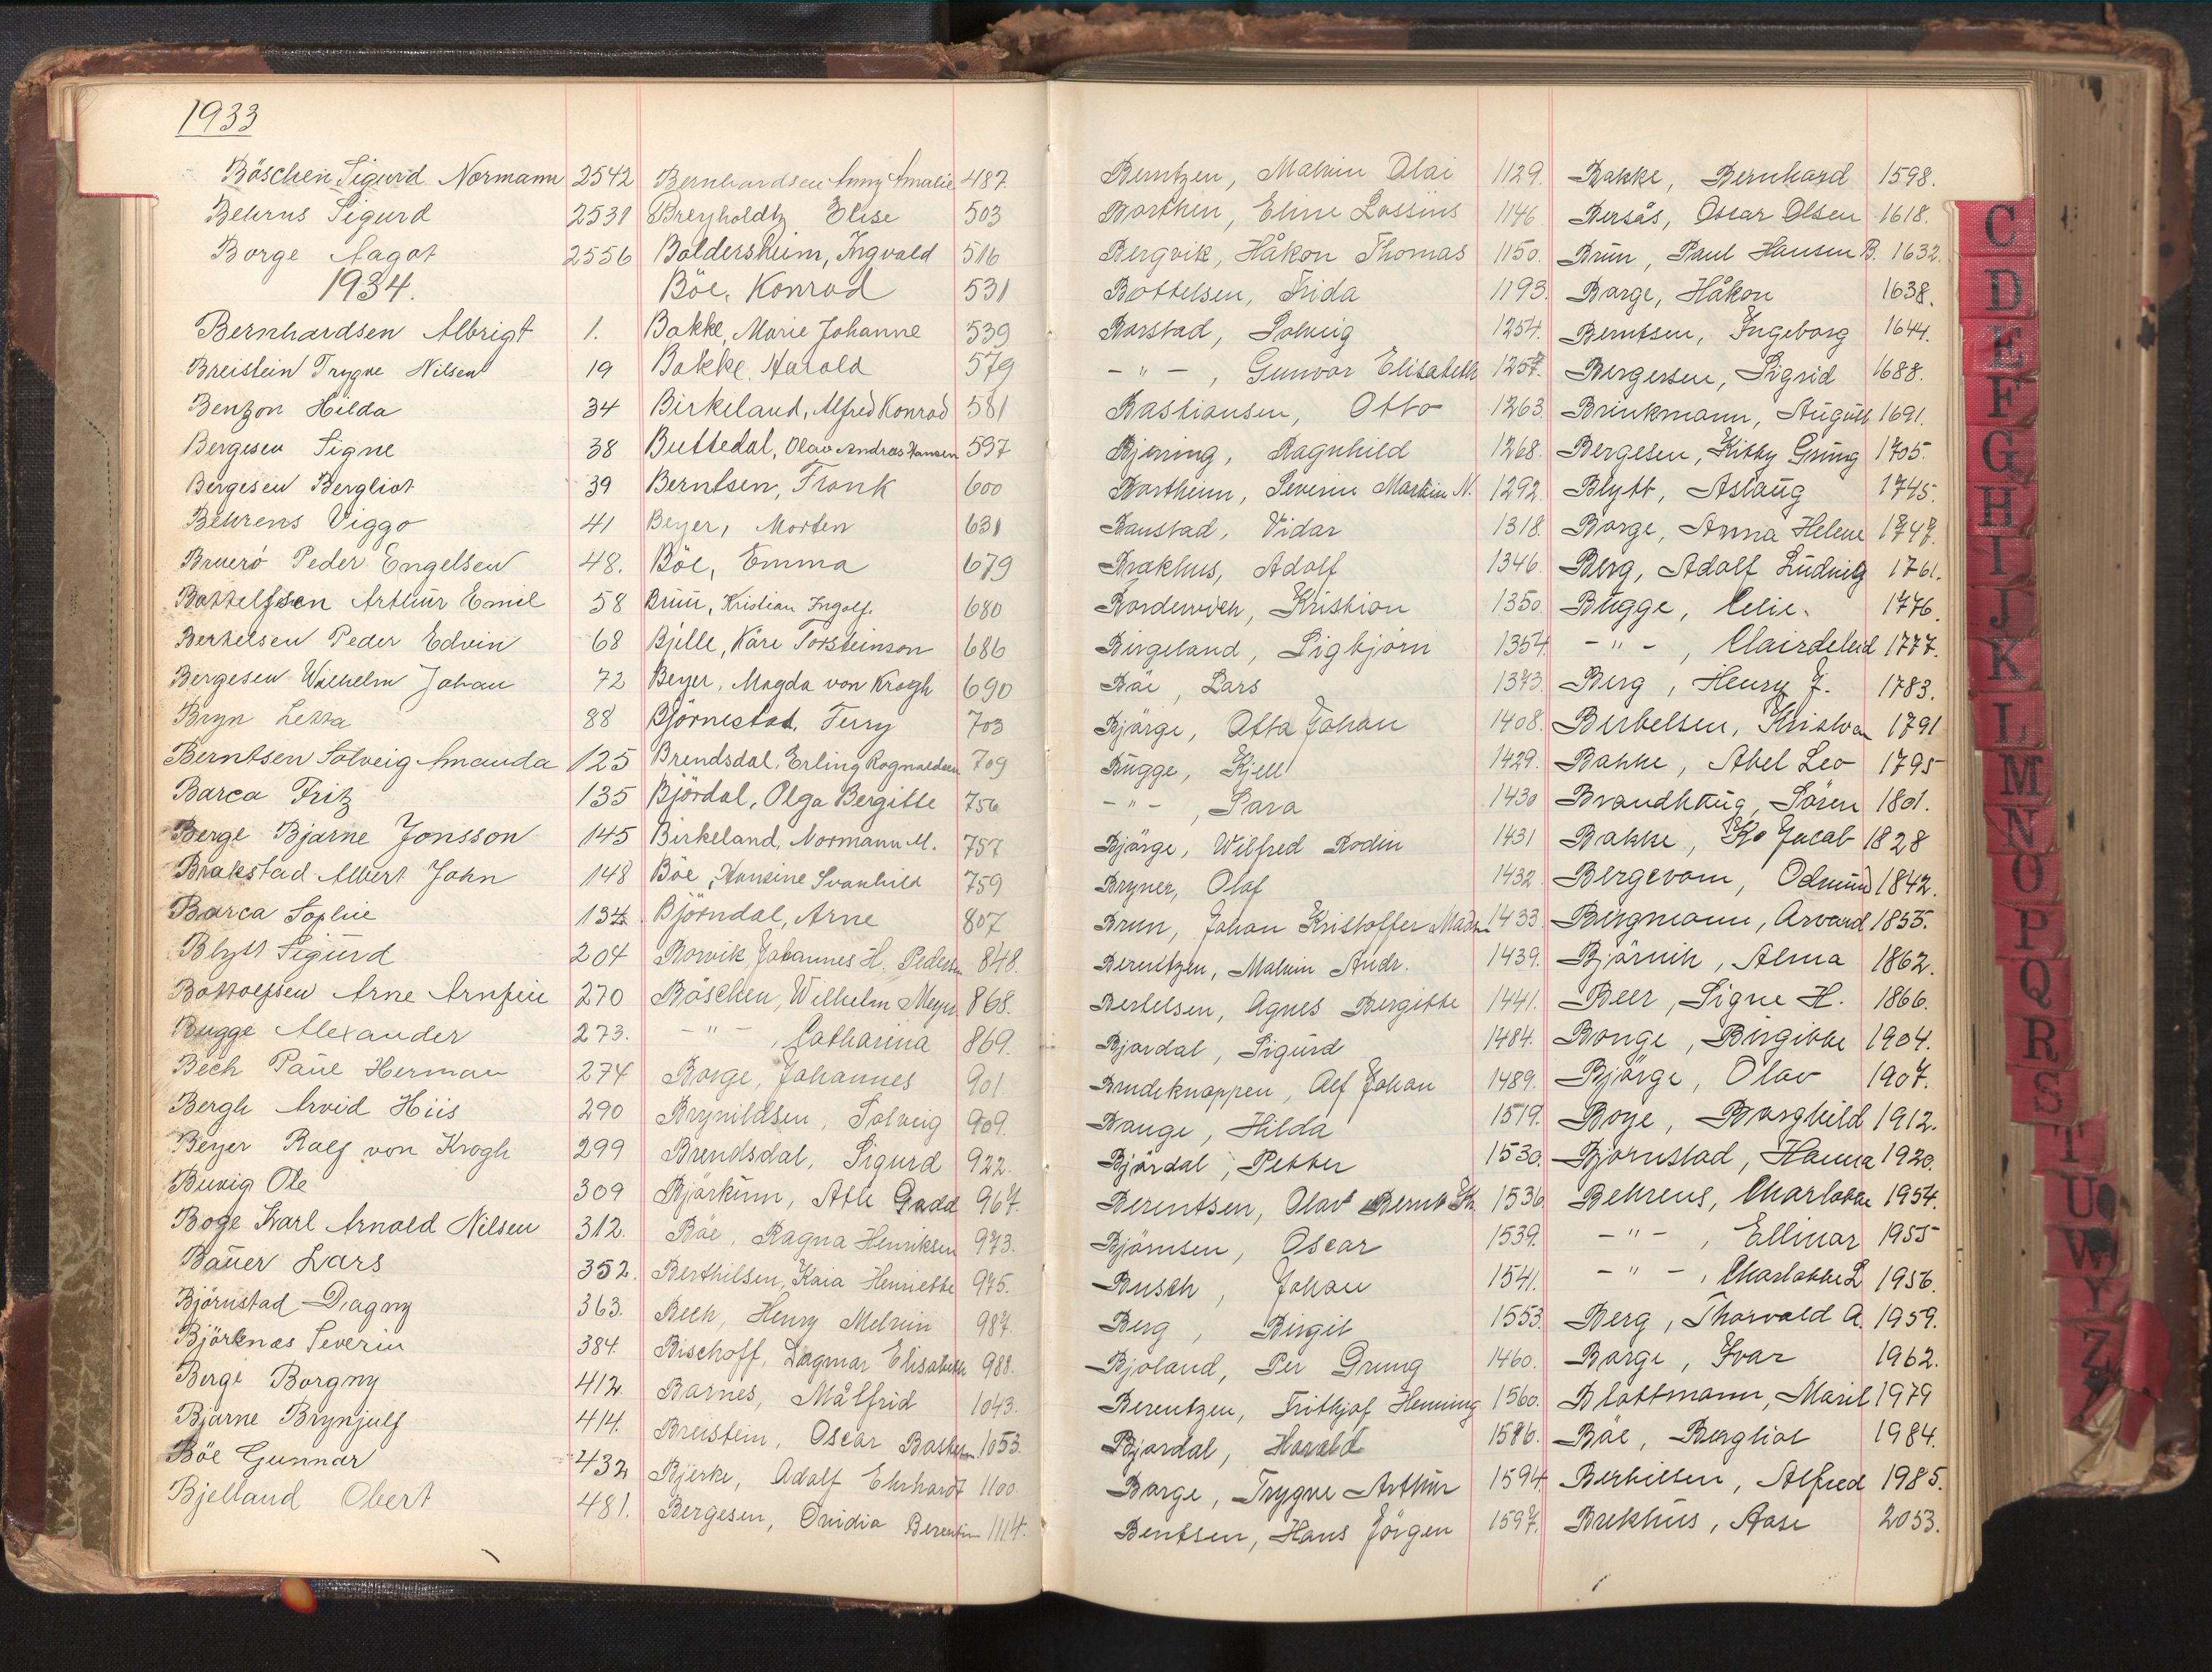 1933
Böschen Sigurd Normann 2542
Behrns Sigurd 2531
Borge Aagot 2556
1934.
Bernhardsen Albrigt 1.
Breistein Trygve Nilsen 19
Benzon Hilda 34
Bergesen Signe 38
Bergesen Bergliot 39
Behrens Viggo 41
Bruerö Peder Engelsen 48.
Bottelfsen Arthur Emil 58
Bertelsen Peder Edvin 68
Bergesen Wilhelm Johan 72
Bryn 88
Berntsen Solveig Amanda 125
Barca Fritz 135
Berge Bjarne Jonsson 145
Brakstad Albert John 148
Barca Sophie 134
Blytt Sigurd 204
Arne Arnfin 270
Bugge Alexander 273.
Bech Paul Herman 274
Bergh Arvid Hiis 290
Beyer Ralf von Krogh 299
Buvig Ole 309
Boge Karl Arnold Nilsen 312.
Bauer Lars 352.
Björnstad Dagny 363.
Björknes Severin 384.
Berge Borgny 412.
Bjarne Brynjulf 414.
Böe Gunnar 432
Bjelland Obert 481.
Bernhardsen Anny Amalie 487
Breyholdtz Elise 503
Boldersheim, Ingvald 516
Böe, Konrad 531
Bakke, Marie Johanne 539
Bakke, Harald 579
Birkeland, Alfred Konrad 581
Buttedal, Olav Andreas Hansen 597
Berntsen, Frank 600
Beyer, Morten 631
Böe, Emma 679
Brun, Kristian Ingolf. 680
Bjelle, Kåre Torsteinson 686
Beyer, Magda von Krogh 690
Björnestad, Ferry 703
Brendsdal, Erling Rognaldsen 709
Björdal, Olga Bergitte 756
Birkeland, Normann M. 757
Böe, Hansine Svanhild 759
Björndal, Arne 807
Borvik, Johannes H. Pedersen 848.
Böschen, Wilhelm Meyer 868.
- " - , Catharina 869.
Borge, Johannes 901
Brynildsen, Solveig 909.
Brendsdal, Sigurd 922.
Björkum, Atle Gadd 967.
Böe, Ragna Henriksen 973.
Berthilsen, Kaia Henriette 975.
Bech, Henry Melvin 987.
Bischoff, Dagmar Elisabeth 988.
Barnes, Målfrid 1043.
Breistein, Oscar 1053.
Bjerke, Adolf Ehrhardt 1100.
Bergesen, Ovidia Berentin 1114.
Berntzen, Malvin Olai 1129.
Borthen, Eline Lossius 1146
Bergvik, Håkon Thomas 1150.
Bottelsen, Frida 1193.
Borstad, Solveig 1254.
- " - , Gunvor Elisabeth 1257.
Bastiansen, Otto 1263.
Bjering, Ragnhild 1268.
Bortheim, Severin Martin N. 1292.
Baustad, Vidar 1318.
Brakhus, Adolf 1346.
Bordewich, Kristian 1350.
Birgeland, Sigbjörn 1354.
Böe, Lars 1373.
Bjørge, Otto Johan 1408.
Bugge, Kjell 1429.
- " - , Sara 1430
Bjørge, Wilfred Rodin 1431
Bryner, Olaf 1432.
Brun, Johan Kristoffer Mads. 1433.
Berentzen, Malvin Andr. 1439.
Bertelsen, Agnes Bergitte 1441.
Bjordal, Sigurd 1484.
Brudeknappen, Alf Johan 1489.
Bauge, Hilda 1519.
Bjørdal, Petter 1530.
Berentsen, Olav Bernt 1536.
Bjørnsen, Oscar 1539.
Busch, Johan 1541.
Berg, Birgit 1553.
Bjoland, Per Grung 1460.
Berentzen, Frithjof Henning 1560.
Bjordal, Harald 1586.
Borge, Trygve Arthur 1594.
Bentsen, Hans Jörgen 1597.
Bakke, Bernhard 1598.
Bersås, Oscar Olsen 1618.
Brun, Paul Hansen B. 1632.
Borge, Håkon 1638.
Berntsen, Ingeborg 1644.
Bergersen, Sigrid 1688.
Brinkmann, August 1691.
Bergesen, Kitty Grung 1705.
Blytt, Aslaug 1745.
Borge, Anna Helene 1747.
Berg, Adolf Ludvig 1761.
Bugge, Celie. 1776.
- " - , 1777.
Berg, Henry J. 1783.
Bertelsen, 1791
Bakke, Abel Leo 1795
Brandhaug, Sören 1801.
Bakke, Jacob 1828
Bergevam, Odmund 1842.
Birgmann, Arvard 1855.
Bjørnik, Alma 1862.
Beer, Signe H. 1866.
Bonge, Birgitte 1904.
Bjørge, Olav 1907.
Boye, Borghild 1912.
Bjørnstad, Hanna 1920.
Behrens, Charlotte 1954.
- " - , Ellinor 1955
- " - , Charlotte L 1956.
Berg, Thorvald A. 1959.
Borge, Ivar 1962.
Blattmann, Maril 1979
Böe, Bergliot 1984.
Bertilsen, Alfred 1985.
Brekhus, Aase 2053.
C
D
E
F
G
H
I
J
K
L
M
N
O
P
Q
R
S
T
U
W
Y
Z